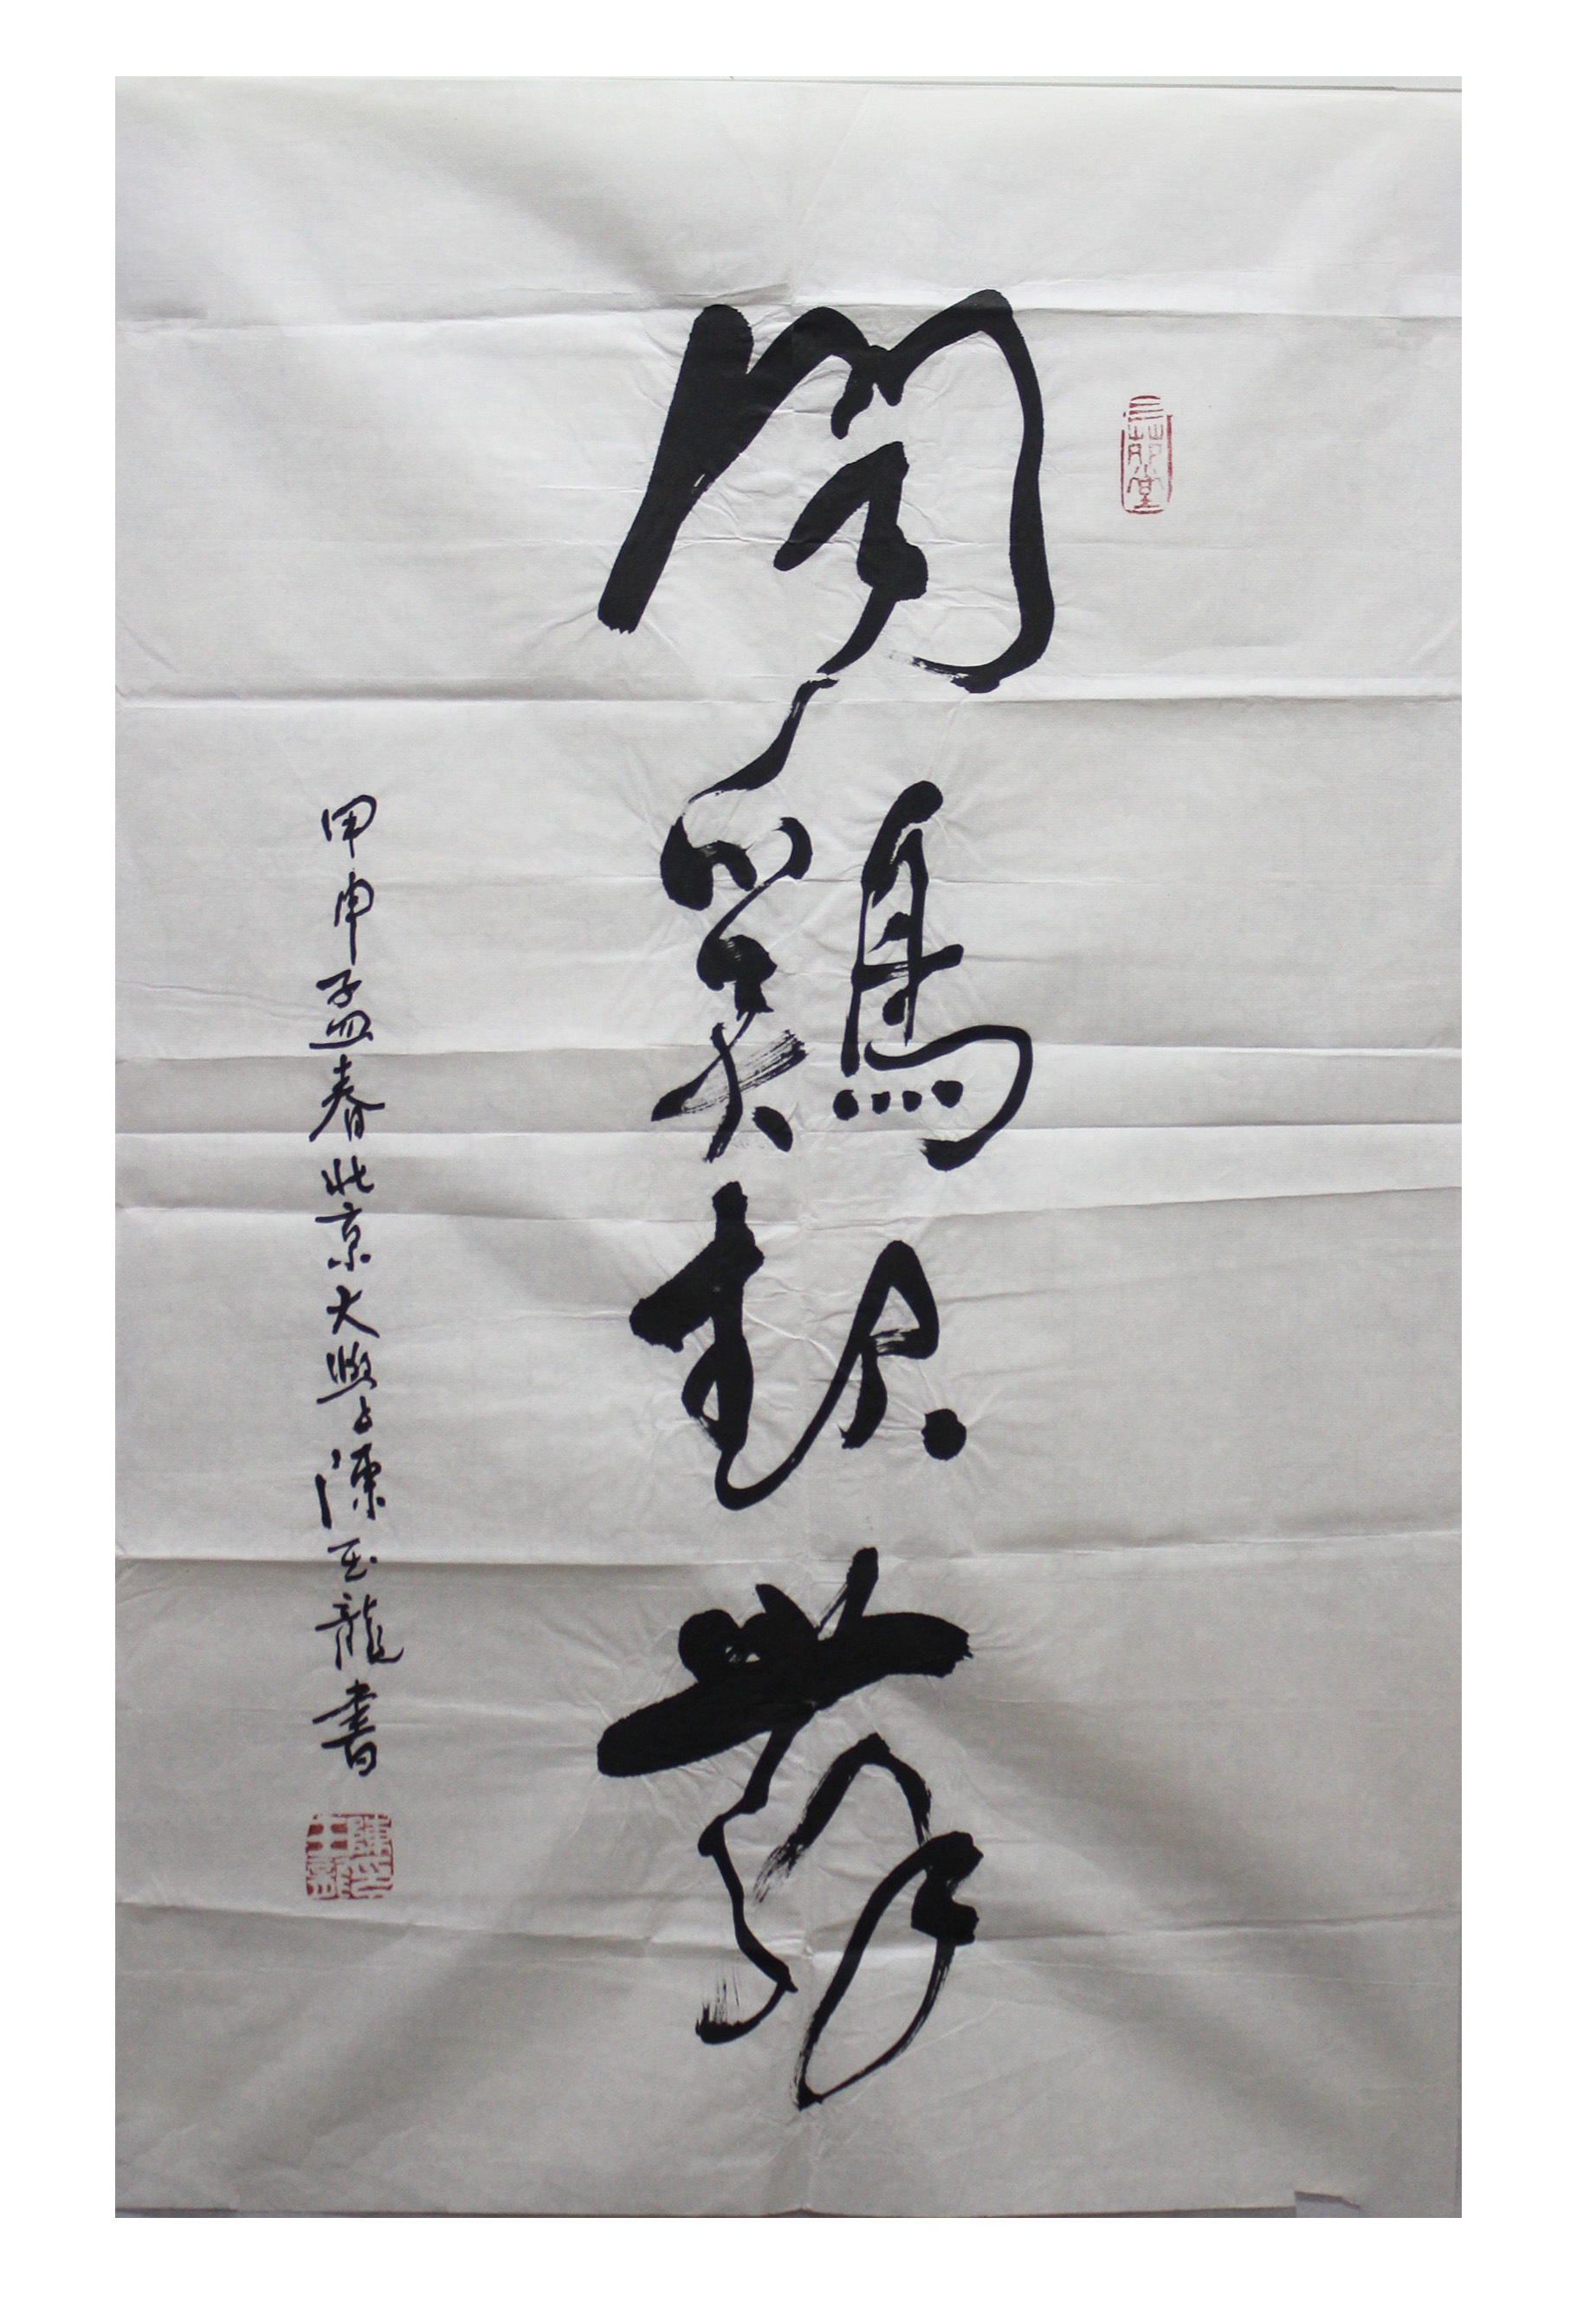 聞鷄起舞
甲申孟春北京大學陳玉龍書